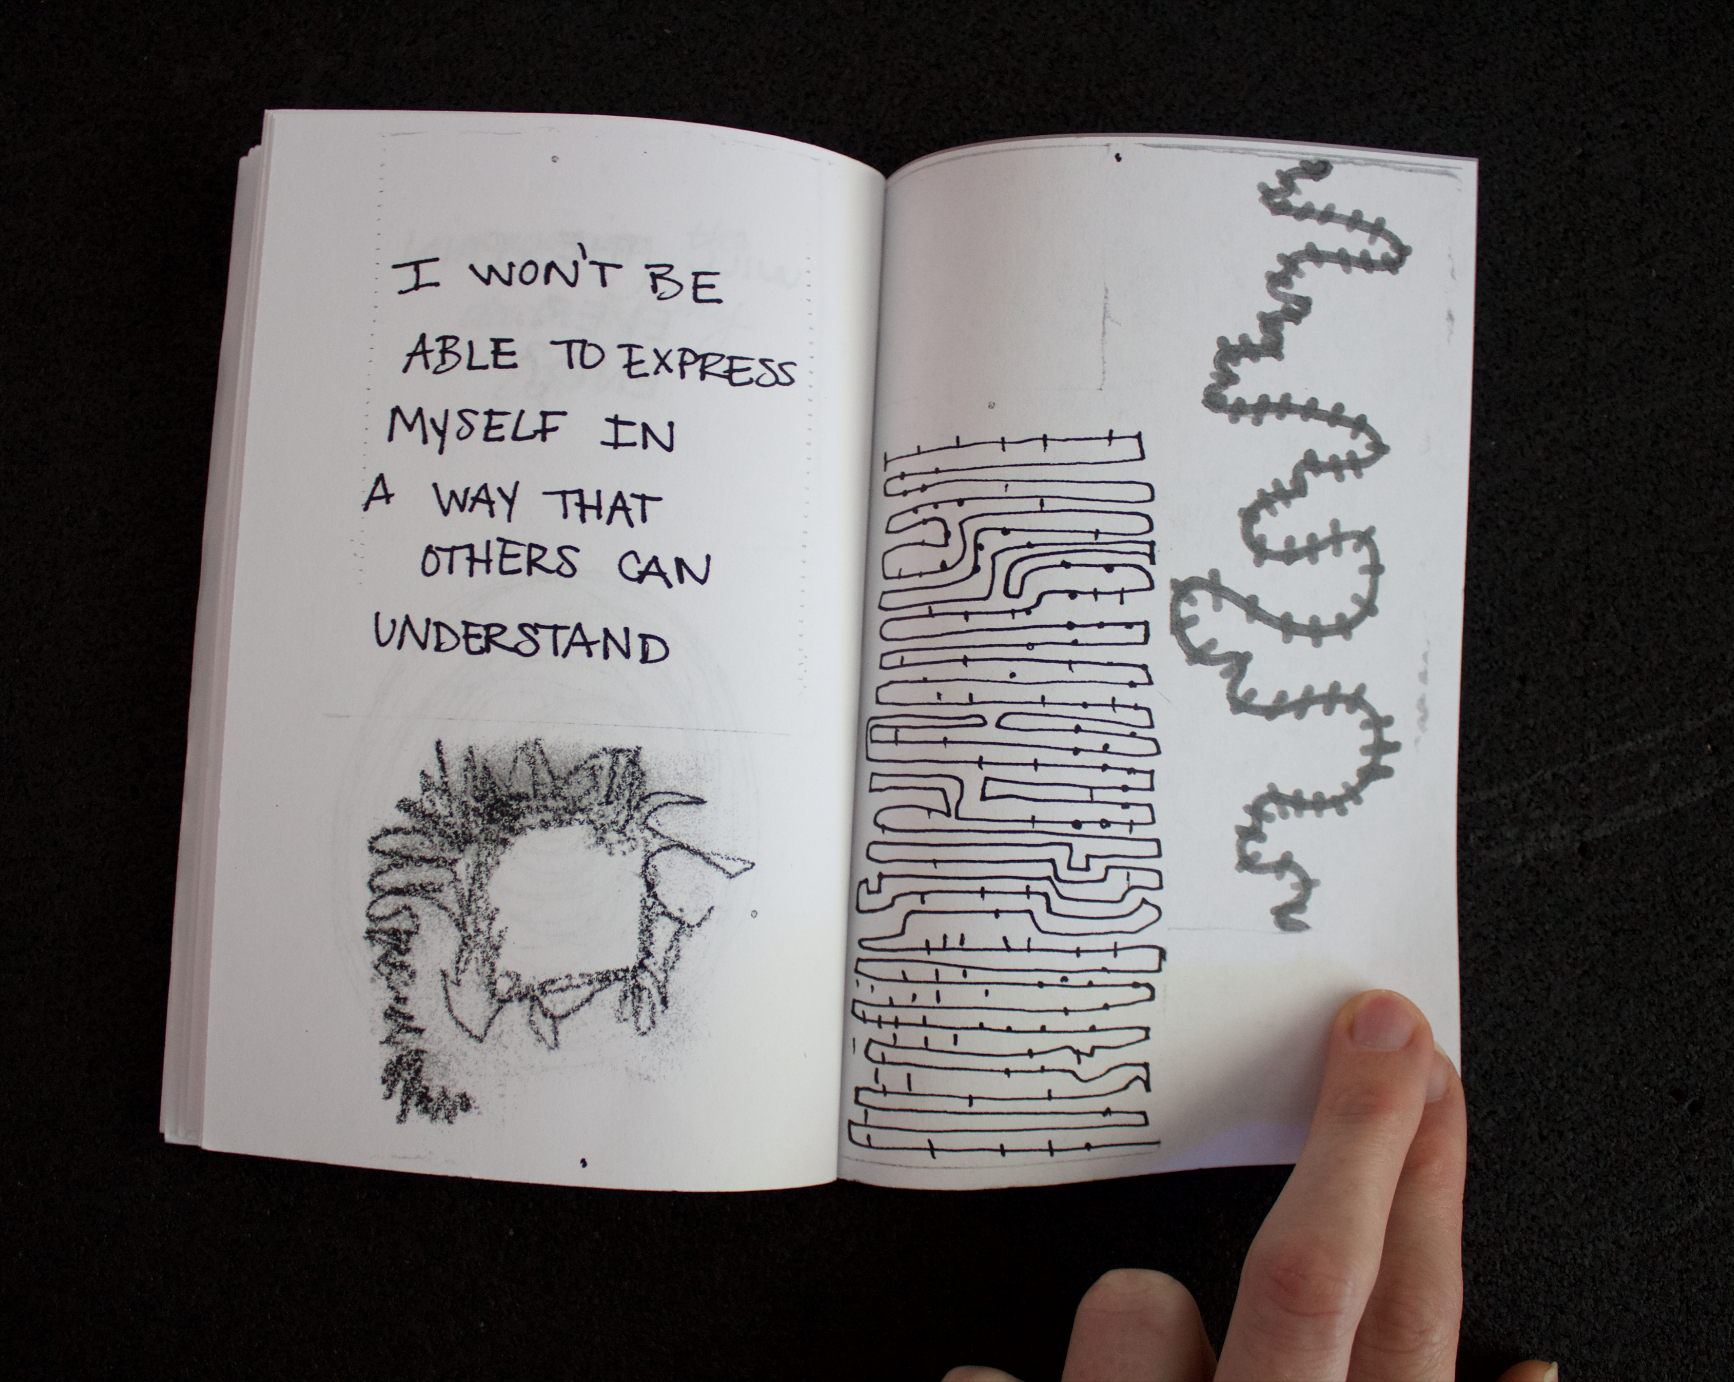 I WON'T BE
ABLE TO EXPRESS
MYSELF IN
A WAY THAT
OTHERS CAN
UNDERSTAND